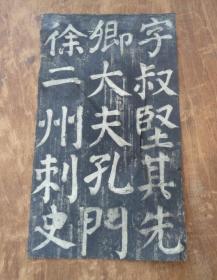 字叔堅其先
卿大夫孔門
徐二州刺史